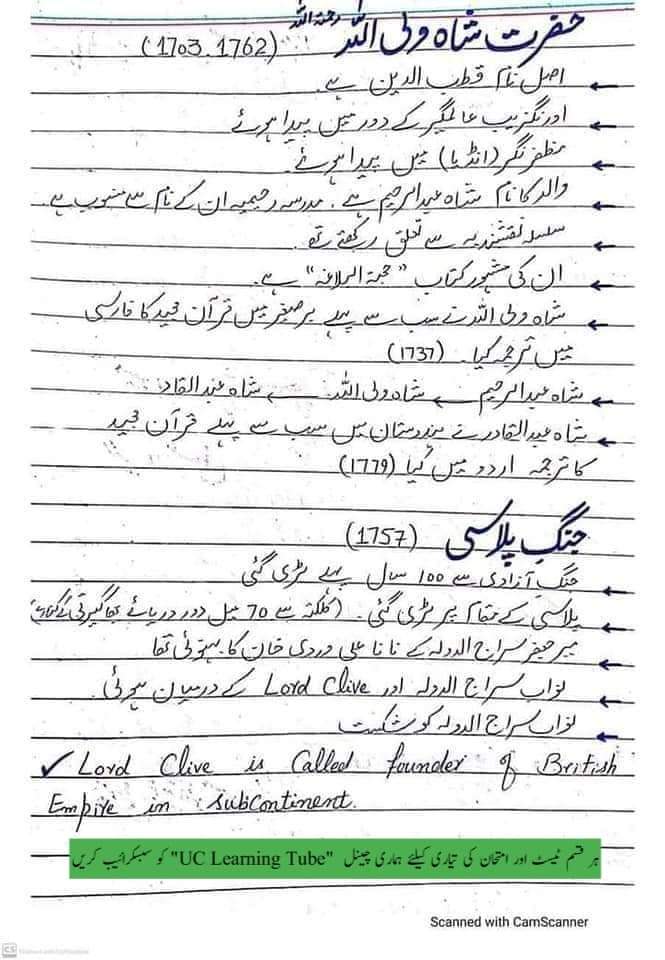 حضرت شاہ ولی اللہ رحمۃ اللہ
(1703.1762)
← اصل نام قطب الدین ہے۔
← اورنگزیب عالمگیر کے دور میں پیدا ہوئے
← مظفر نگر (انڈیا) میں پیدا ہوئے۔
← والد کا نام شاہ عبدالرحیم ہے۔ مدرسہ رحیمیہ ان کے نام سے منسوب ہے
← سلسلہ نقشبندیہ سے تعلق رکھتے تھے۔
← ان کی مشہور کتاب "حجۃ البلاغہ" ہے۔
← شاہ ولی اللہ نے سب سے پہلے برصغیر میں قرآن مجید کا فارسی
میں ترجمہ کیا۔ (1737)
← شاہ عبدالرحیم ← شاہ ولی اللہ ← شاہ عبدالقادر
← شاہ عبدالقادر نے ہندوستان میں سب سے پہلے قرآن مجید
کا ترجمہ اردو میں کیا (1779)
جنگ پلاسی (1757)
← جنگ آزادی سے 100 سال پہلے لڑی گئی
← پلاسی کے مقام پر لڑی گئی۔ (کلکتہ سے 70 میل دور دریائے بھاگیرتی کے کنارے)
← میر جعفر سراج الدولہ کے نانا علی وردی خان کا بہنوئی تھا
← نواب سراج الدولہ اور Lord Clive کے درمیان ہوئی۔
← نواب سراج الدولہ کو شکست
✓ Lord Clive is Called founder of British
Empire in subcontinent.
ہر قسم ٹیسٹ اور امتحان کی تیاری کیلئے ہماری چینل "UC Learning Tube" کو سبسکرائیب کریں
Scanned with CamScanner
CS Scanned with CamScanner